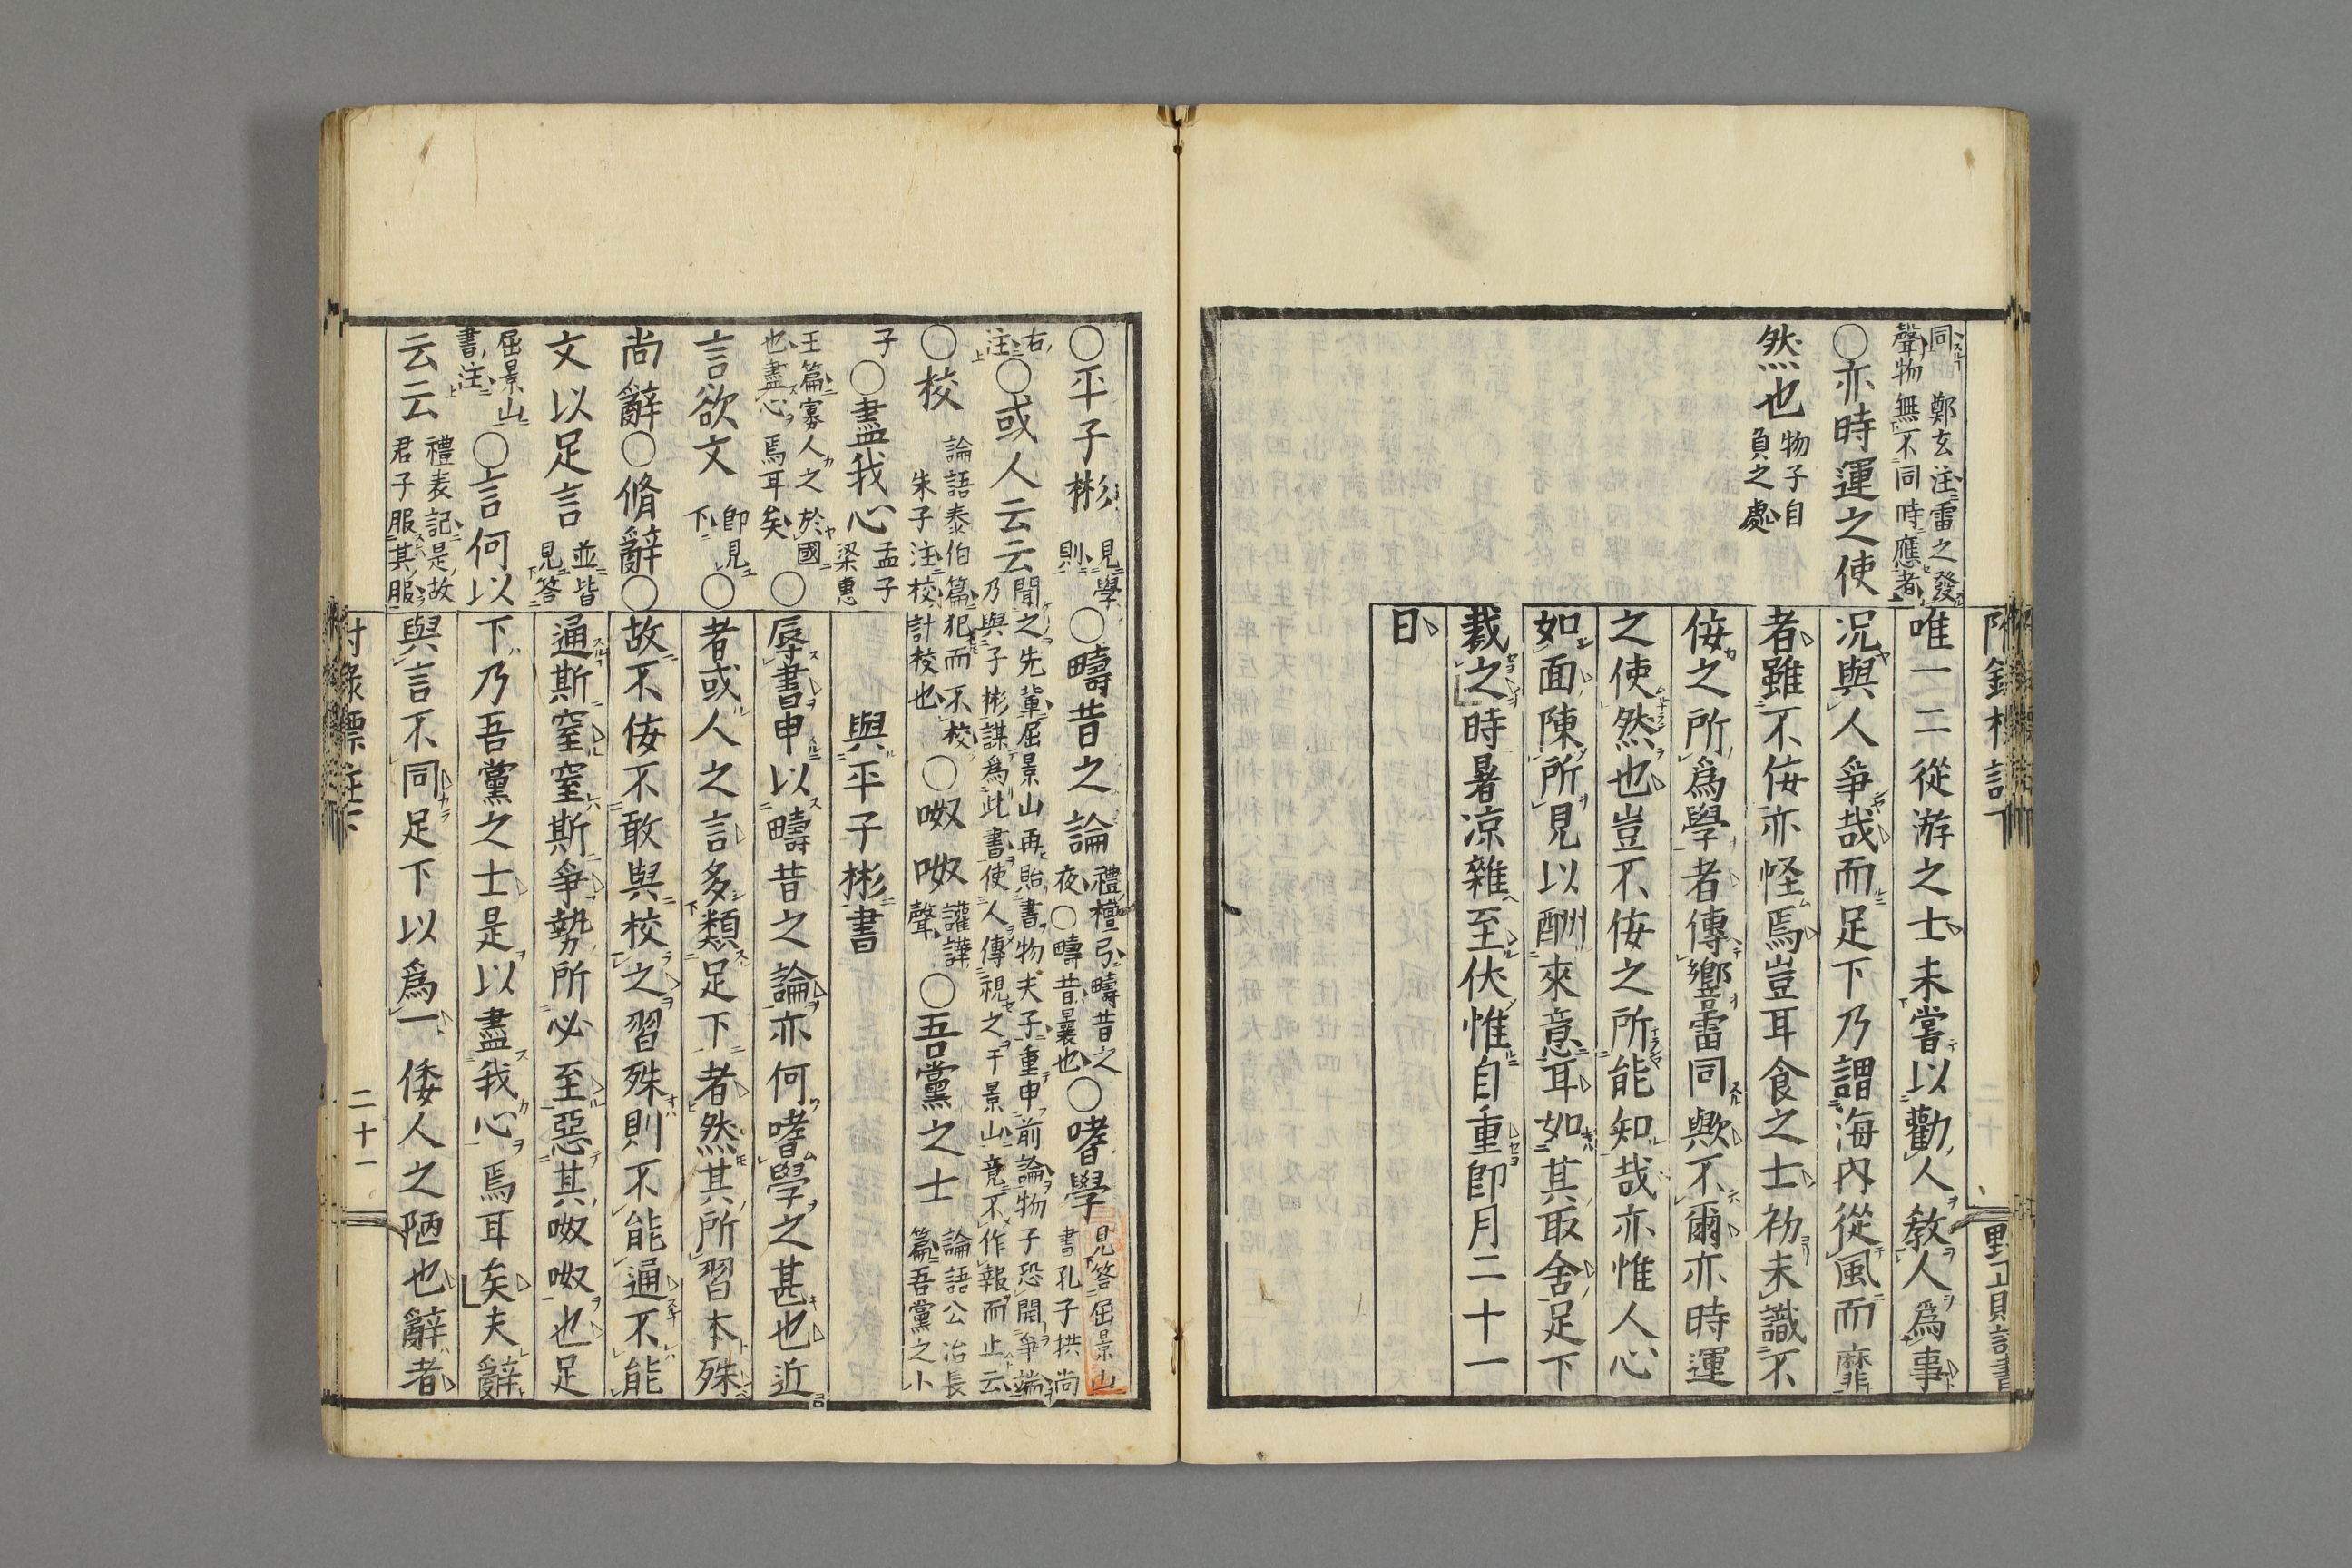 同 鄭玄注雷之發
聲物無不同時應者
○亦時運之使
然也 物子自
負之處
唯一二從游之士未嘗以勸人教人爲事
况與人爭哉而足下乃謂海內從風而靡
者雖不侫亦怪焉豈耳食之士初未識不
侫之所爲學者傳響雷同歟不爾亦時運
之使然也豈不侫之所能知哉亦惟人心
如面陳所見以酬來意耳如其取舍足下
裁之時暑凉雜至伏惟自重卽月二十一
日
○平子彬 見學
則 ○疇昔之論 禮檀弓疇昔之
夜○疇昔曩也 ○嗜學 見答屈景山
書孔子拱尚
右注 ○或人云云 聞之先輩屈景山再貽書物夫子重申前論物子恐開爭端
乃與子彬謀爲此書使人傳視之于景山竟不作報而止云
○校 論語泰伯篇犯而不校
朱子注校計校也 ○呶呶 讙譁
聲 ○吾黨之士 論語公冶長
篇吾黨之小
子 ○盡我心 孟子
梁惠
王篇寡人之於國
也盡心焉耳矣 ○
言欲文 卽見
下 ○
尚辭○脩辭○
文以足言 並皆
見答
屈景山
書注 ○言何以
云云 禮表記是故
君子服其服
與平子彬書
辱書申以疇昔之論亦何嗜學之甚也近
者或人之言多類足下者然其所習本殊
故不侫不敢與校之習殊則不能通不能
通斯窒窒斯爭勢所必至惡其呶呶也足
下乃吾黨之士是以盡我心焉耳矣夫辭
與言不同足下以爲一倭人之陋也辭者
二十一